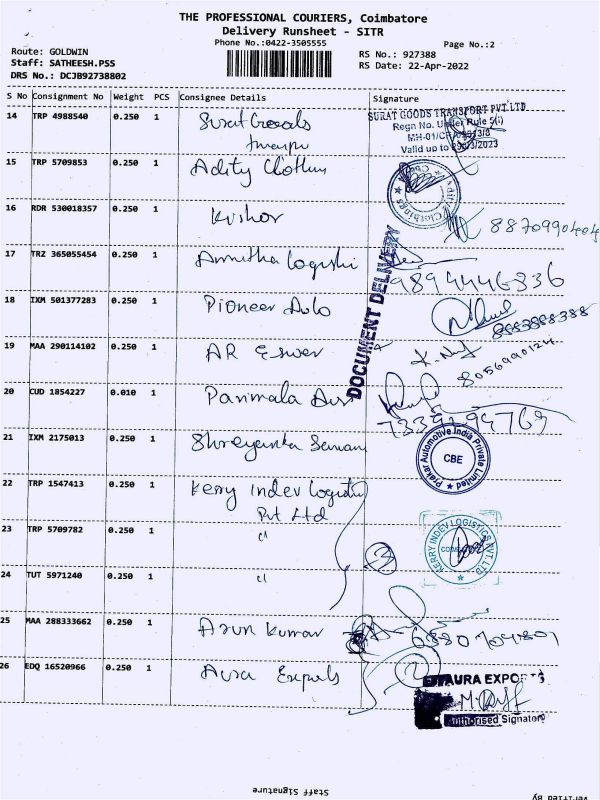 THE PROFESSIONAL COURIERS, Coimbatore
Delivery Runsheet - SITR
Phone No.:0422-3505555
Page No.:2
Route: GOLDWIN
Staff: SATHEESH.PSS
DRS No.: DCJB92738802
RS No.: 927388
RS Date: 22-Apr-2022
S No Consignment No Weight PCS Consignee Details Signature
14 TRP 4988540 0.250 1 Surat Goods
SURAT GOODS TRANSPORT PVT.LTD.
Regn No. Under Rule 5(i)
Valid up to
15 TRP 5709853 0.250 1 Adity Clothing
16 RDR 530018357 0.250 1 Kishor
17 TRZ 365055454 0.250 1 Amitha Logistic
9894446336
18 IXM 501377283 0.250 1 Pioneer Auto
DOCUMENT DELIVERY
19 MAA 290114102 0.250 1 AR Eswer
8056990124
20 CUD 1854227 0.010 1 Parimala
21 IXM 2175013 0.250 1
Prakar Automotive India Private Limited
CBE
22 TRP 1547413 0.250 1 Kerry Indev Logistic
Pvt Ltd
23 TRP 5709782 0.250 1 "
KERRY INDEV LOGISTICS PVT. LTD
24 TUT 5971240 0.250 1 "
2
25 MAA 288333662 0.250 1 Arun Kumar
26 EDQ 16520966 0.250 1 Aura Exports
2
AURA EXPORTS
Authorised Signatory
Staff Signature
Verified By